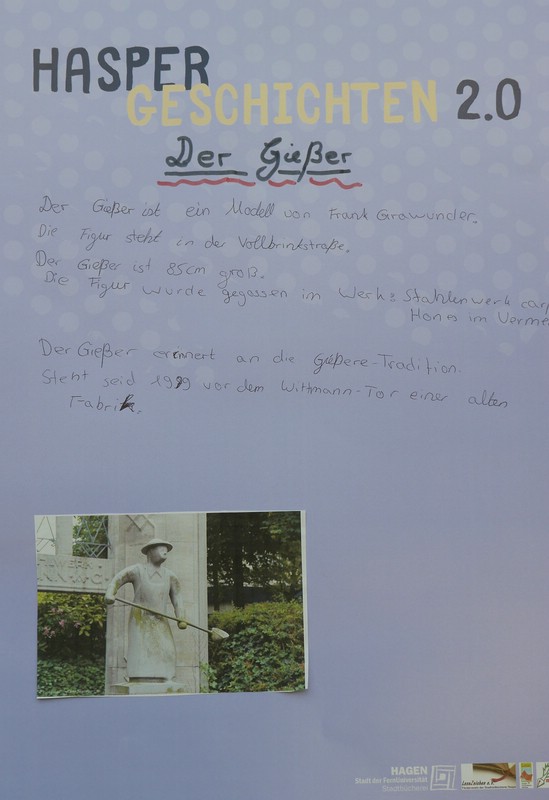 HASPER
GESCHICHTEN 2.0
Der Gießer
Der Gießer ist ein Modell von Frank Grawunder.
Die Figur steht in der Vollbrinkstraße.
Der Gießer ist 85cm groß.
Die Figur wurde gegossen im Werk: Stahlenwerk carp
Hones im Verme
Der Gießer erinnert an die Gießere-Tradition.
Steht seid 1999 vor dem Wittmann-Tor einer alten
Fabrik.
HAGEN
Stadt der FernUniversität
Stadtbücherei